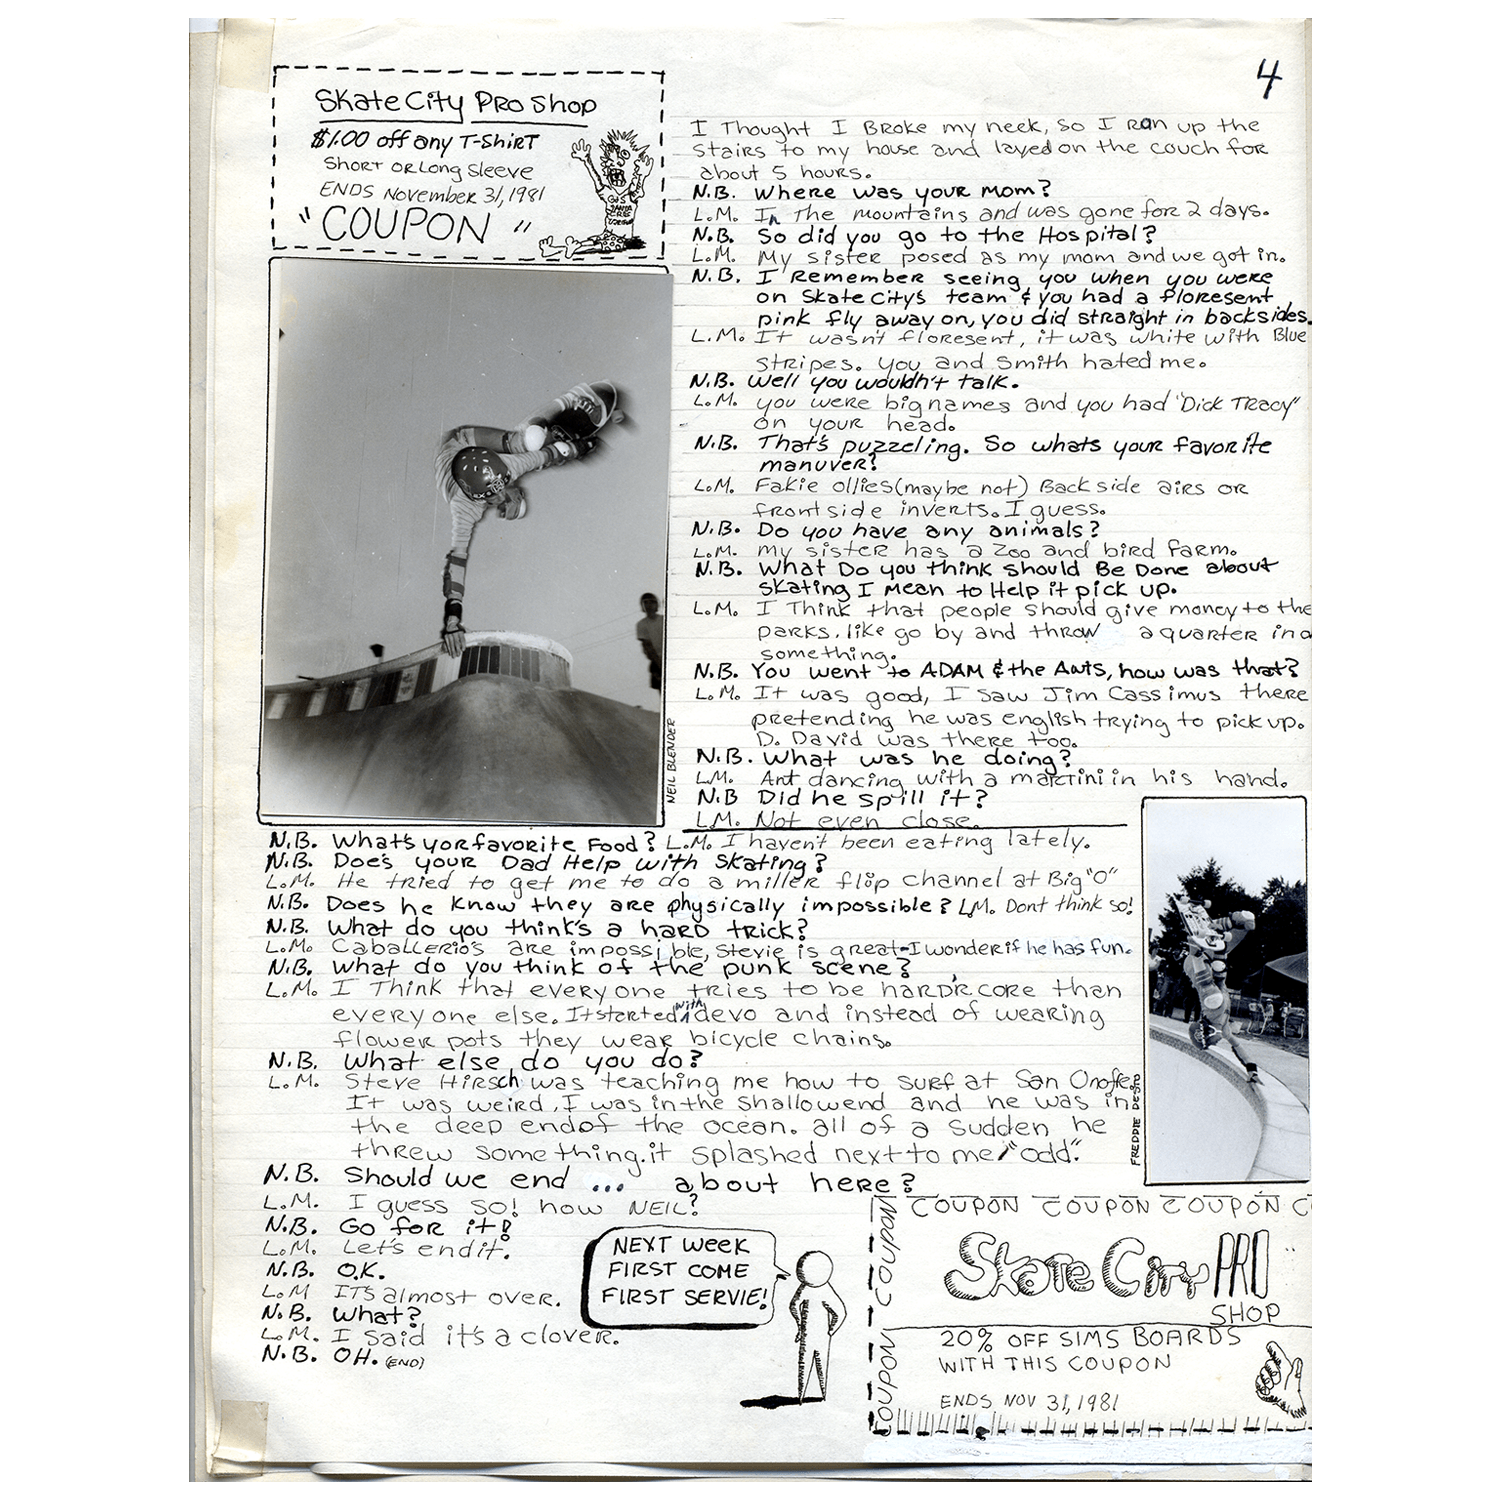 4
Skate City Pro Shop
$1.00 off any T-Shirt
Short or Long Sleeve
ENDS November 31, 1981
"COUPON"
I Thought I Broke my neck, so I ran up the
stairs to my house and layed on the couch for
about 5 hours.
N.B. Where was your mom?
L.M. In the mountains and was gone for 2 days.
N.B. So did you go to the Hospital?
L.M. My sister posed as my mom and we got in.
N.B. I Remember seeing you when you were
on Skate City's team & you had a floresent
pink fly away on, you did straight in backsides.
L.M. It wasn't floresent, it was white with Blue
stripes. you and Smith hated me.
N.B. Well you wouldn't talk.
L.M. you were big names and you had "Dick Tracy"
on your head.
N.B. That's puzzeling. So whats your favorite
manuver?
L.M. Fakie ollies (maybe not) Back side airs or
frontside inverts. I guess.
N.B. Do you have any animals?
L.M. my sister has a Zoo and bird farm.
N.B. What Do you think should Be Done about
skating I mean to Help it pick up.
L.M. I Think that people should give money to the
parks. like go by and throw a quarter in a
something.
N.B. You went to ADAM & the Ants, how was that?
L.M. It was good, I saw Jim Cassimus there
pretending he was english trying to pick up.
D. David was there too.
N.B. What was he doing?
L.M. Ant dancing with a martini in his hand.
N.B Did he spill it?
L.M. Not even close.
NEIL BLENDER
N.B. What's yor favorite Food? L.M. I haven't been eating lately.
N.B. Does your Dad Help with skating?
L.M. He tried to get me to do a miller flip channel at Big "O"
N.B. Does he know they are physically impossible? L.M. Dont think so!
N.B. What do you think's a hard trick?
L.M. Caballerio's are impossible, Stevie is great-I wonder if he has fun.
N.B. What do you think of the punk scene?
L.M. I Think that everyone tries to be hardr core than
everyone else. It started with devo and instead of wearing
flower pots they wear bicycle chains.
N.B. What else do you do?
L.M. Steve Hirsch was teaching me how to surf at San Onofre.
It was weird, I was in the shallow end and he was in
the deep end of the ocean. all of a sudden he
threw something. it splashed next to me, "odd".
FREDDIE DESOTO
N.B. Should we end ... about here?
L.M. I guess so! how NEIL?
N.B. Go for it!
L.M. Let's end it.
N.B. O.K.
L.M IT's almost over.
N.B. What?
L.M. I said it's a clover.
N.B. OH. (END)
NEXT week
FIRST COME
FIRST SERVIE!
COUPON COUPON COUPON C
Coupon Coupon
Skate City PRO
SHOP
20% OFF SIMS BOARDS
WITH THIS COUPON
ENDS NOV 31, 1981